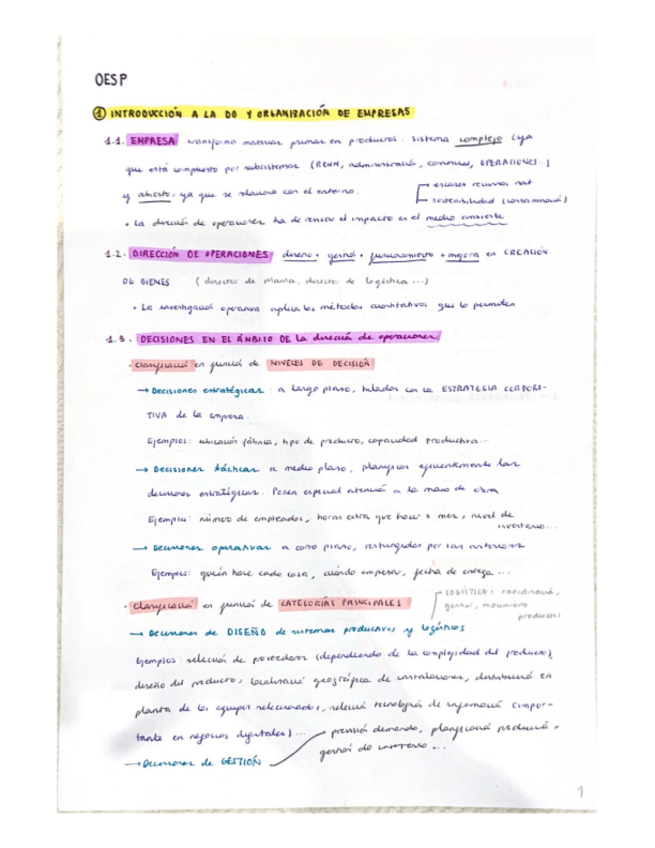 OESP
① INTRODUCCIÓN A LA DO Y ORGANIZACIÓN DE EMPRESAS
1.1. EMPRESA transforma materias primas en productos. Sistema complejo (ya
que está compuesto por subsistemas (RRHH, administración, comercial, OPERACIONES..)
y abierto, ya que se relaciona con el entorno.
escasos recursos nat
sostenibilidad (contaminación)
• La dirección de operaciones ha de revisar el impacto en el medio ambiente
1.2. DIRECCIÓN DE OPERACIONES: diseño + gestión + funcionamiento + mejora en CREACIÓN
DE BIENES (director de planta, director de logística...)
• La investigación operativa aplica los métodos cuantitativos que lo permiten
1.3. DECISIONES EN EL ÁMBITO DE LA dirección de operaciones
· clasificación en función de NIVELES DE DECISIÓN
→ Decisiones estratégicas: a largo plazo, con la ESTRATEGIA CORPORA-
TIVA de la empresa.
Ejemplos: ubicación fábrica, tipo de producto, capacidad productiva...
→ Decisiones tácticas a medio plazo, planifican eficientemente las
decisiones estratégicas. Ponen especial atención a la mano de obra
Ejemplos: número de empleados, horas extra que hacer x mes, nivel de
inventario...
→ Decisiones operativas a corto plazo, restringidas por las anteriores
Ejemplos: quién hace cada cosa, cuándo empezar, fecha de entrega...
· clasificación en función de CATEGORÍAS PRINCIPALES
LOGÍSTICA: coordinación,
gestión, movimiento
productos
→ Decisiones de DISEÑO de sistemas productivos y logísticos
Ejemplos: selección de proveedores (dependiendo de la complejidad del producto),
diseño del producto, localización geográfica de instalaciones, distribución en
planta de los equipos seleccionados, selección tecnología de información (impor-
tante en negocios digitales)...
→ Decisiones de GESTIÓN
previsión demanda, planificación producción,
gestión de inventario...
1